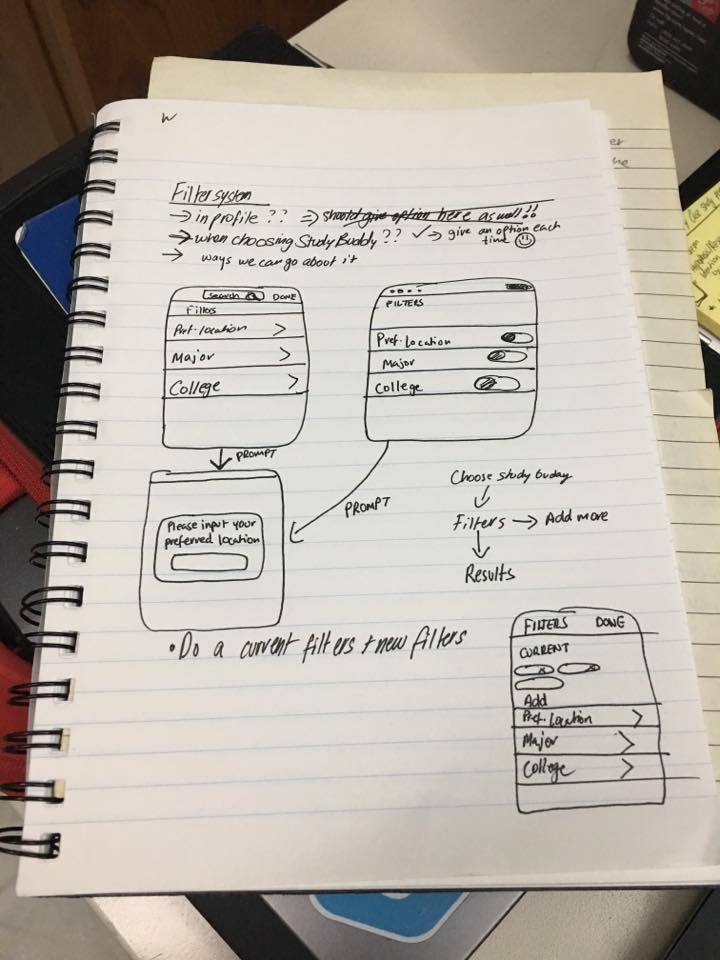 W
Filter system
→ in profile ?? ⇒ should give option here as well!!
→ when choosing Study Buddy ?? ✓ → give an option each
time ☺
→ ways we can go about it
Search DONE
Filters
Pref. location >
Major >
College >
FILTERS
Pref. Location
Major
College
PROMPT
PROMPT
Please input your
preferred location
Choose study buddy
Filters → Add more
Results
• Do a current filters + new filters
FILTERS DONE
CURRENT
x x
Add
Pref. Location >
Major >
College >